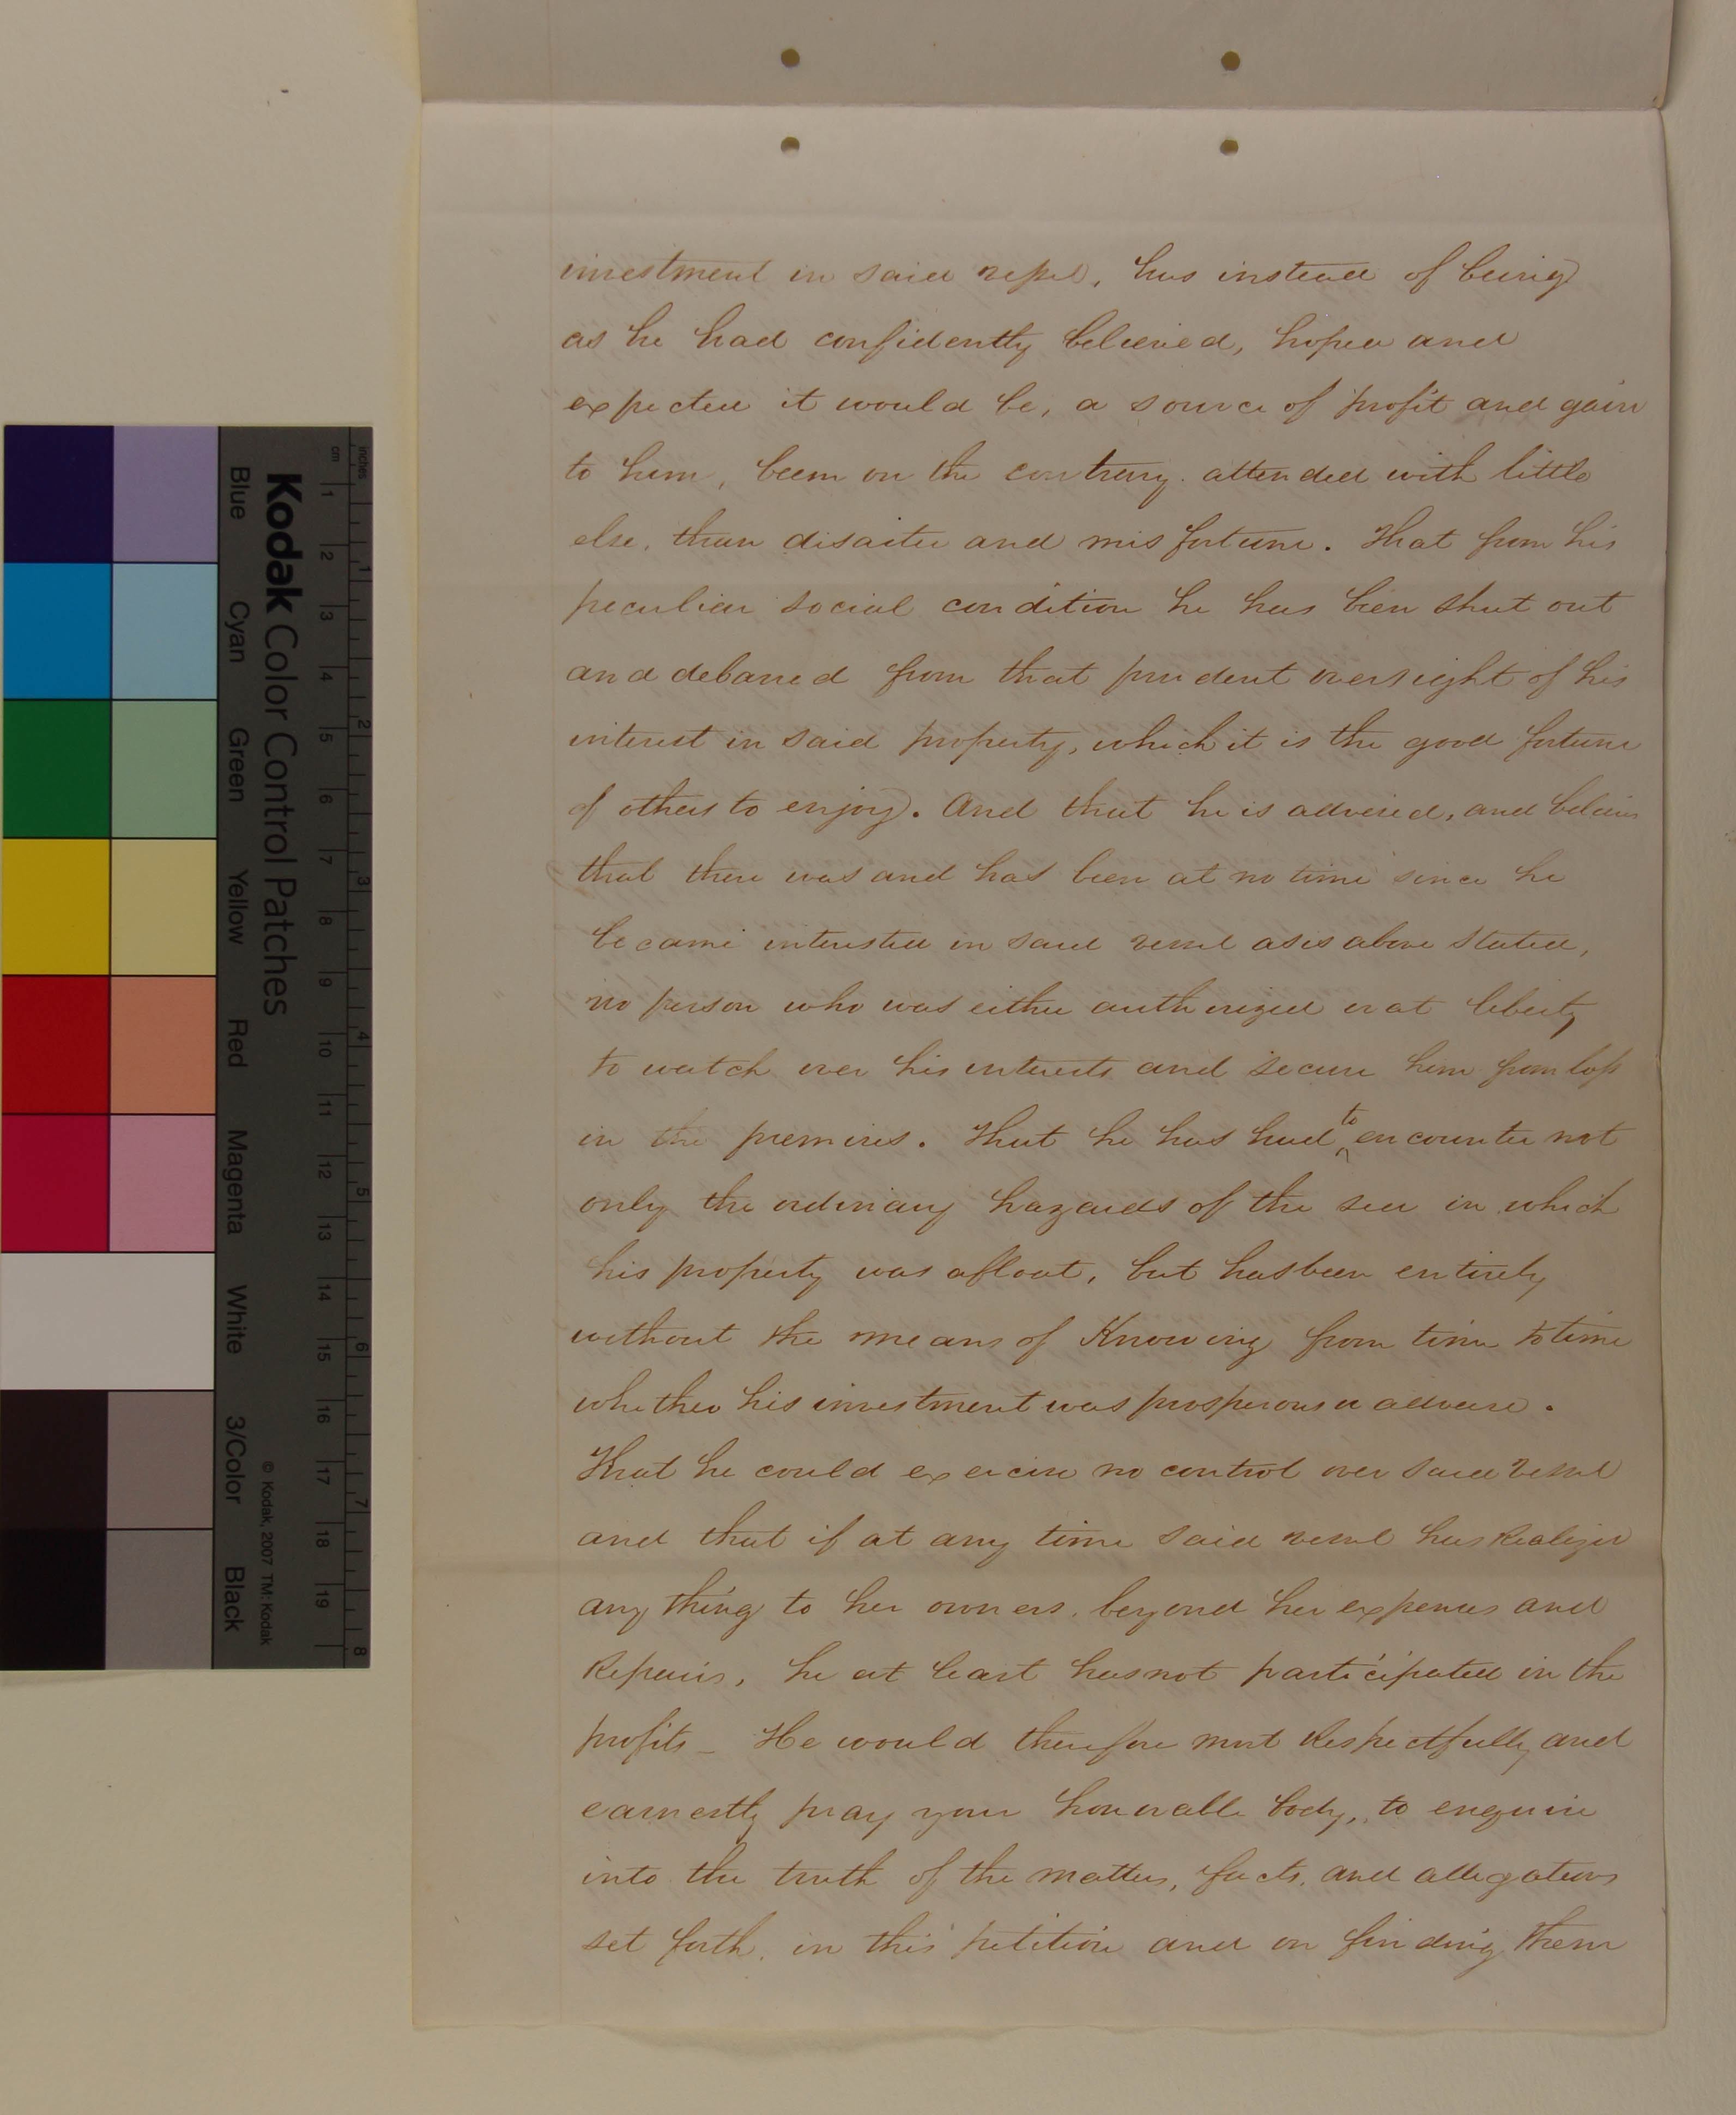 investment in said vessel, has instead of being
as he had confidently believed, hoped and
expected it would be, a source of profit and gain
to him, been on the contrary. attended with little
else, than disaster and misfortune. That from his
peculiar social condition he has been shut out
and debarred from that prudent oversight of his
interest in said property, which it is the good fortune
of others to enjoy. And that he is advised, and believes
that there was and has been at no time since he
became interested in said vessel as is above stated,
no person who was either authorized or at liberty
to watch over his interests and secure him from loss
in the premises. That he has had to encounter not
only the ordinary hazards of the sea in which
his property was afloat, but has been entirely
without the means of Knowing from time to time
whether his investment was prosperous or adverse.
That he could exercise no control over said vessel
and that if at any time said vessel has Realized
any thing to her owners, beyond her expenses and
Repairs, he at least has not participated in the
profits _ He would therefore most Respectfully and
earnestly pray your honorable body, to enquire
into the truth of the matters, facts, and allegations
set forth, in this petition and on finding them
Kodak Color Control Patches
Blue Cyan Green Yellow Red Magenta White 3/Color Black
© Kodak, 2007 TM: Kodak
inches 1 2 3 4 5 6 7 8
cm 1 2 3 4 5 6 7 8 9 10 11 12 13 14 15 16 17 18 19